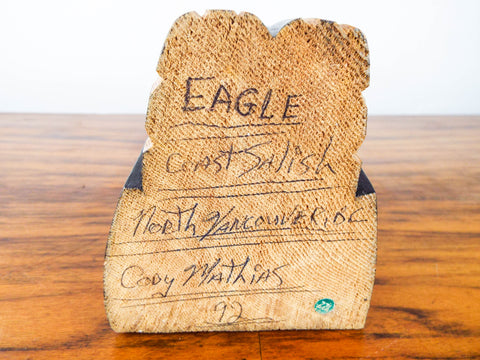 EAGLE
Coast Salish
North Vancouver, BC
Cody Mathias
92